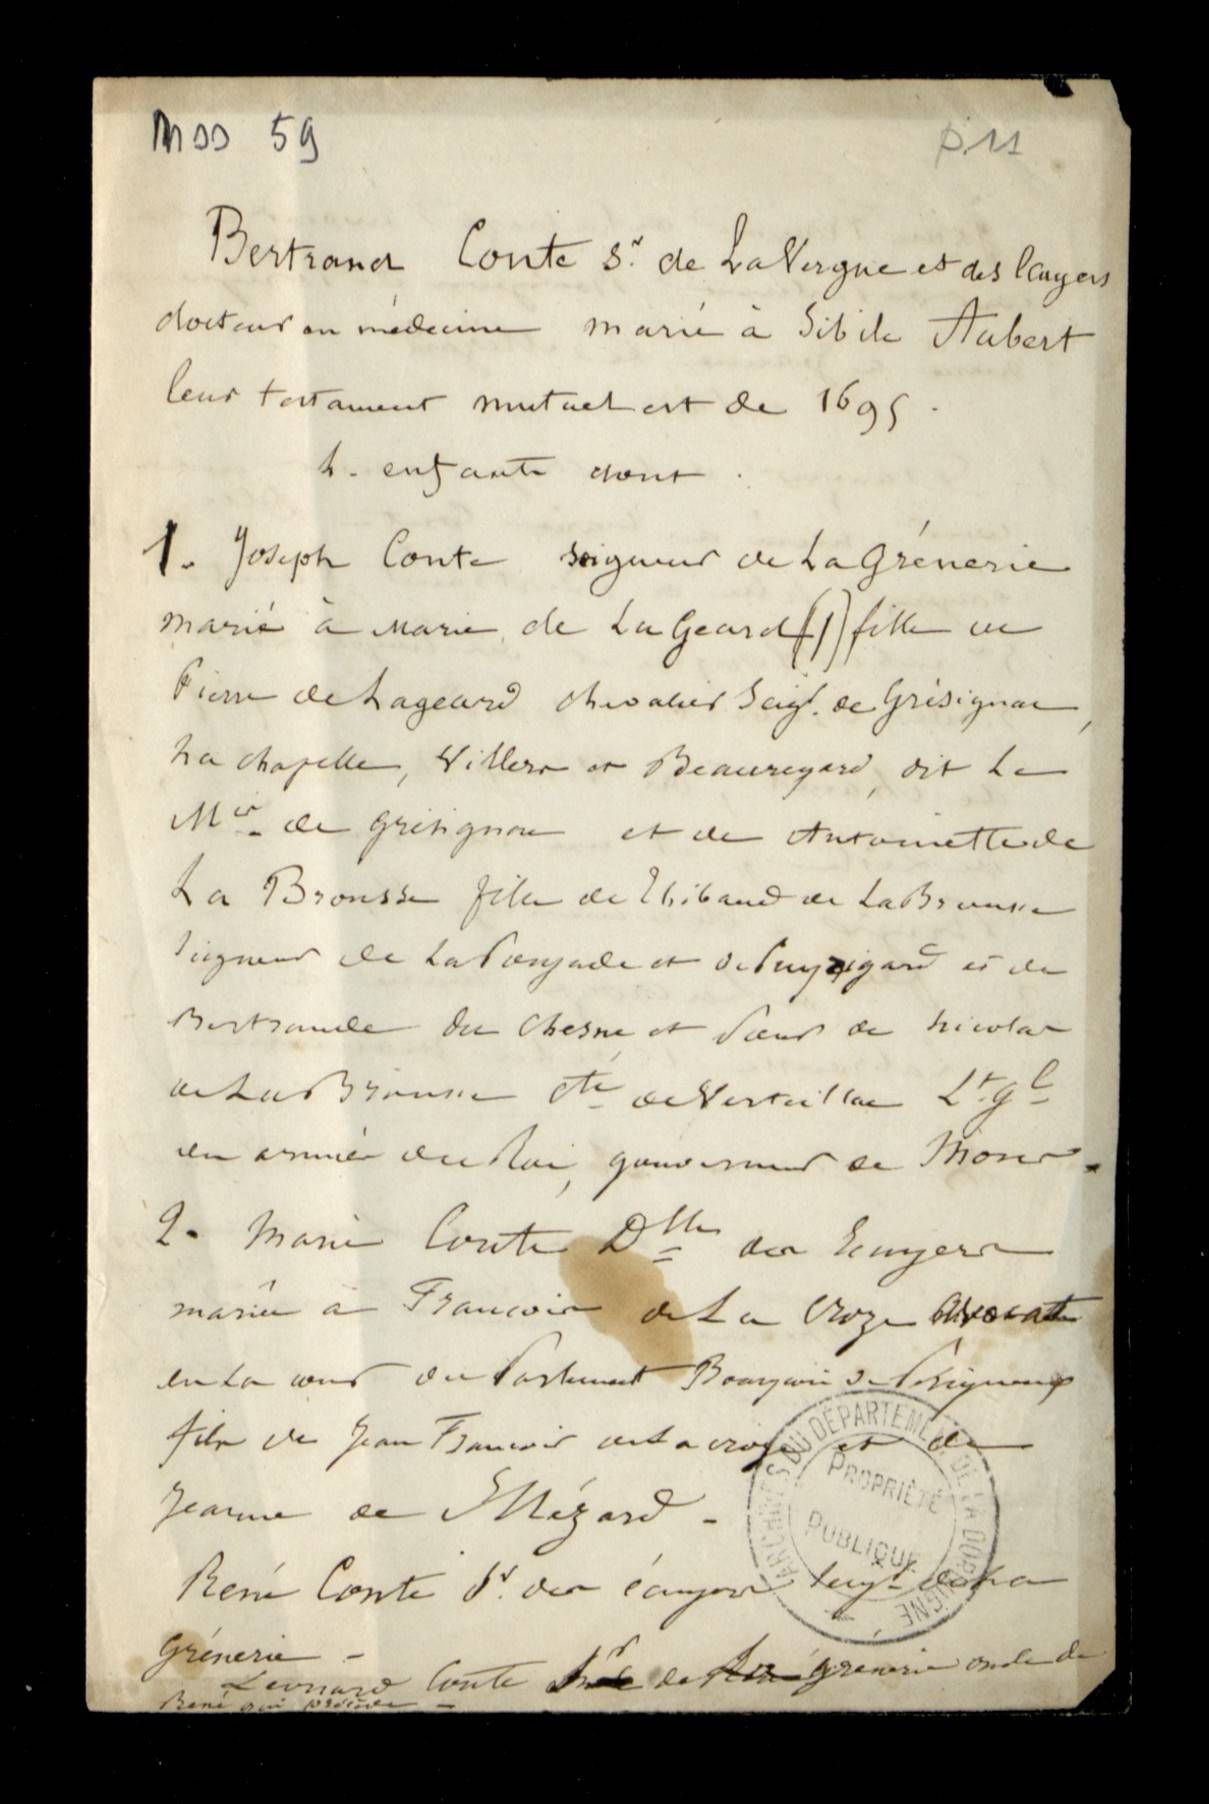 MSS 59
P11
Bertrand Conte Sr. de La Vergne et des
docteur en médecine marié à Sibile Aubert
leur testament mutuel est de 1695.
4. enfants dont.
1. Joseph Conte seigneur de La Grénerie
marié à Marie de La Geard (1) fille de
Pierre de Lageard chevalier Seigr. de Grésignac,
La chapelle, Villers et Beauregard, dit Le
Mis de Grésignac et de Antoinette de
La Brousse fille de Thibaud de La Brousse
seigneur de La Ponjade et de et de
Bertrande du Chesne et soeur de Nicolas
de La Brousse Cte de Verteillac Lt. Gl
des armées du Roi, gouverneur de Mons.
2. Marie Conte Dlle des
mariée à François de La Croze avocat
en La cour du Parlement Bourgeois de Périgueux
fils de Jean François de La croze et de
Jeanne de Mézard -
René Conte Sr. des Seigr. de La
Grénerie -
Leonnard Conte Sr de La grénerie oncle de
René qui précède -
ARCHIVES DU DÉPARTEMENT DE LA DORDOGNE
PROPRIÉTÉ
PUBLIQUE